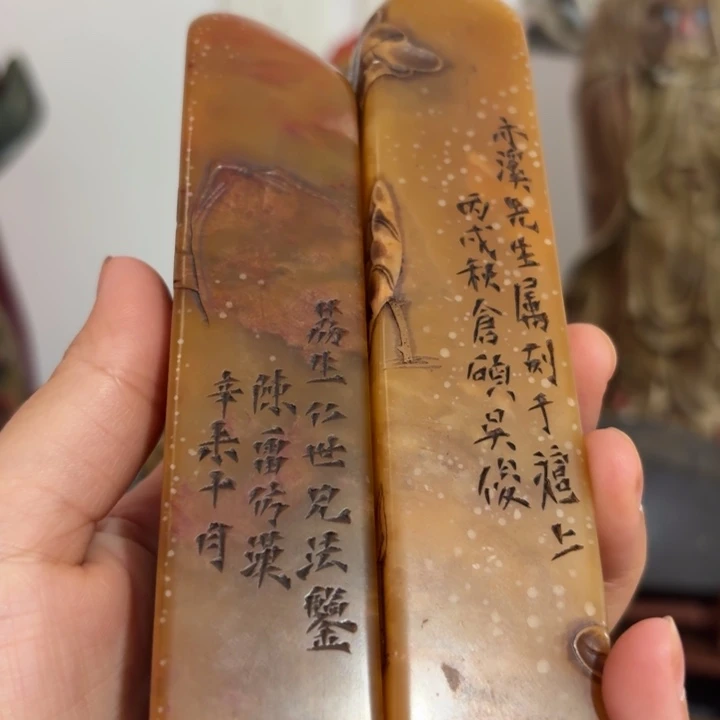 亦溪先生属刻于滬上
丙戌秋倉碩吳俊
荔生仁世兄法鑒
陳雷仿漢
辛未十月